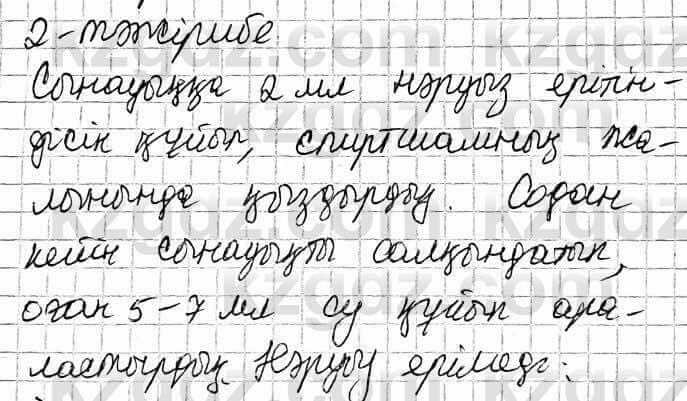 2-тәжірибе
Сынауыққа 2 мл нәруыз ерітін-
дісін құйып, спиртшамның жа-
лынында қыздырдық. Содан
кейін сынауықты салқындатып,
оған 5-7 мл су құйып ара-
ластырдық. Нәруыз ерімеді.